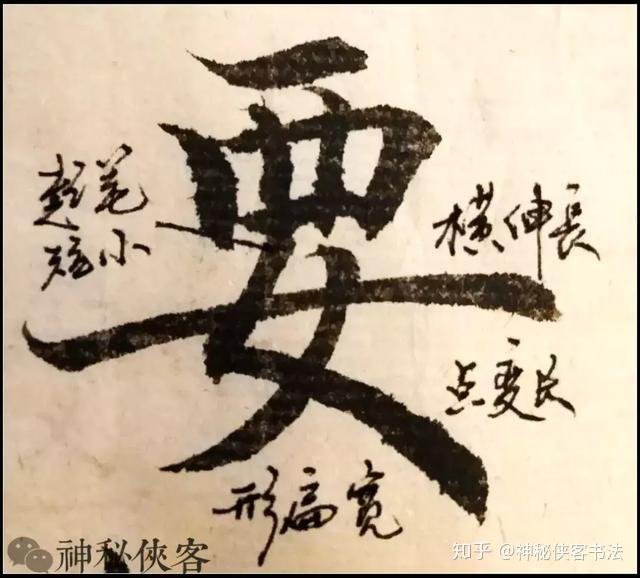 要
起笔
短小
横伸长
点变长
形扁宽
神秘侠客
知乎 @神秘侠客书法